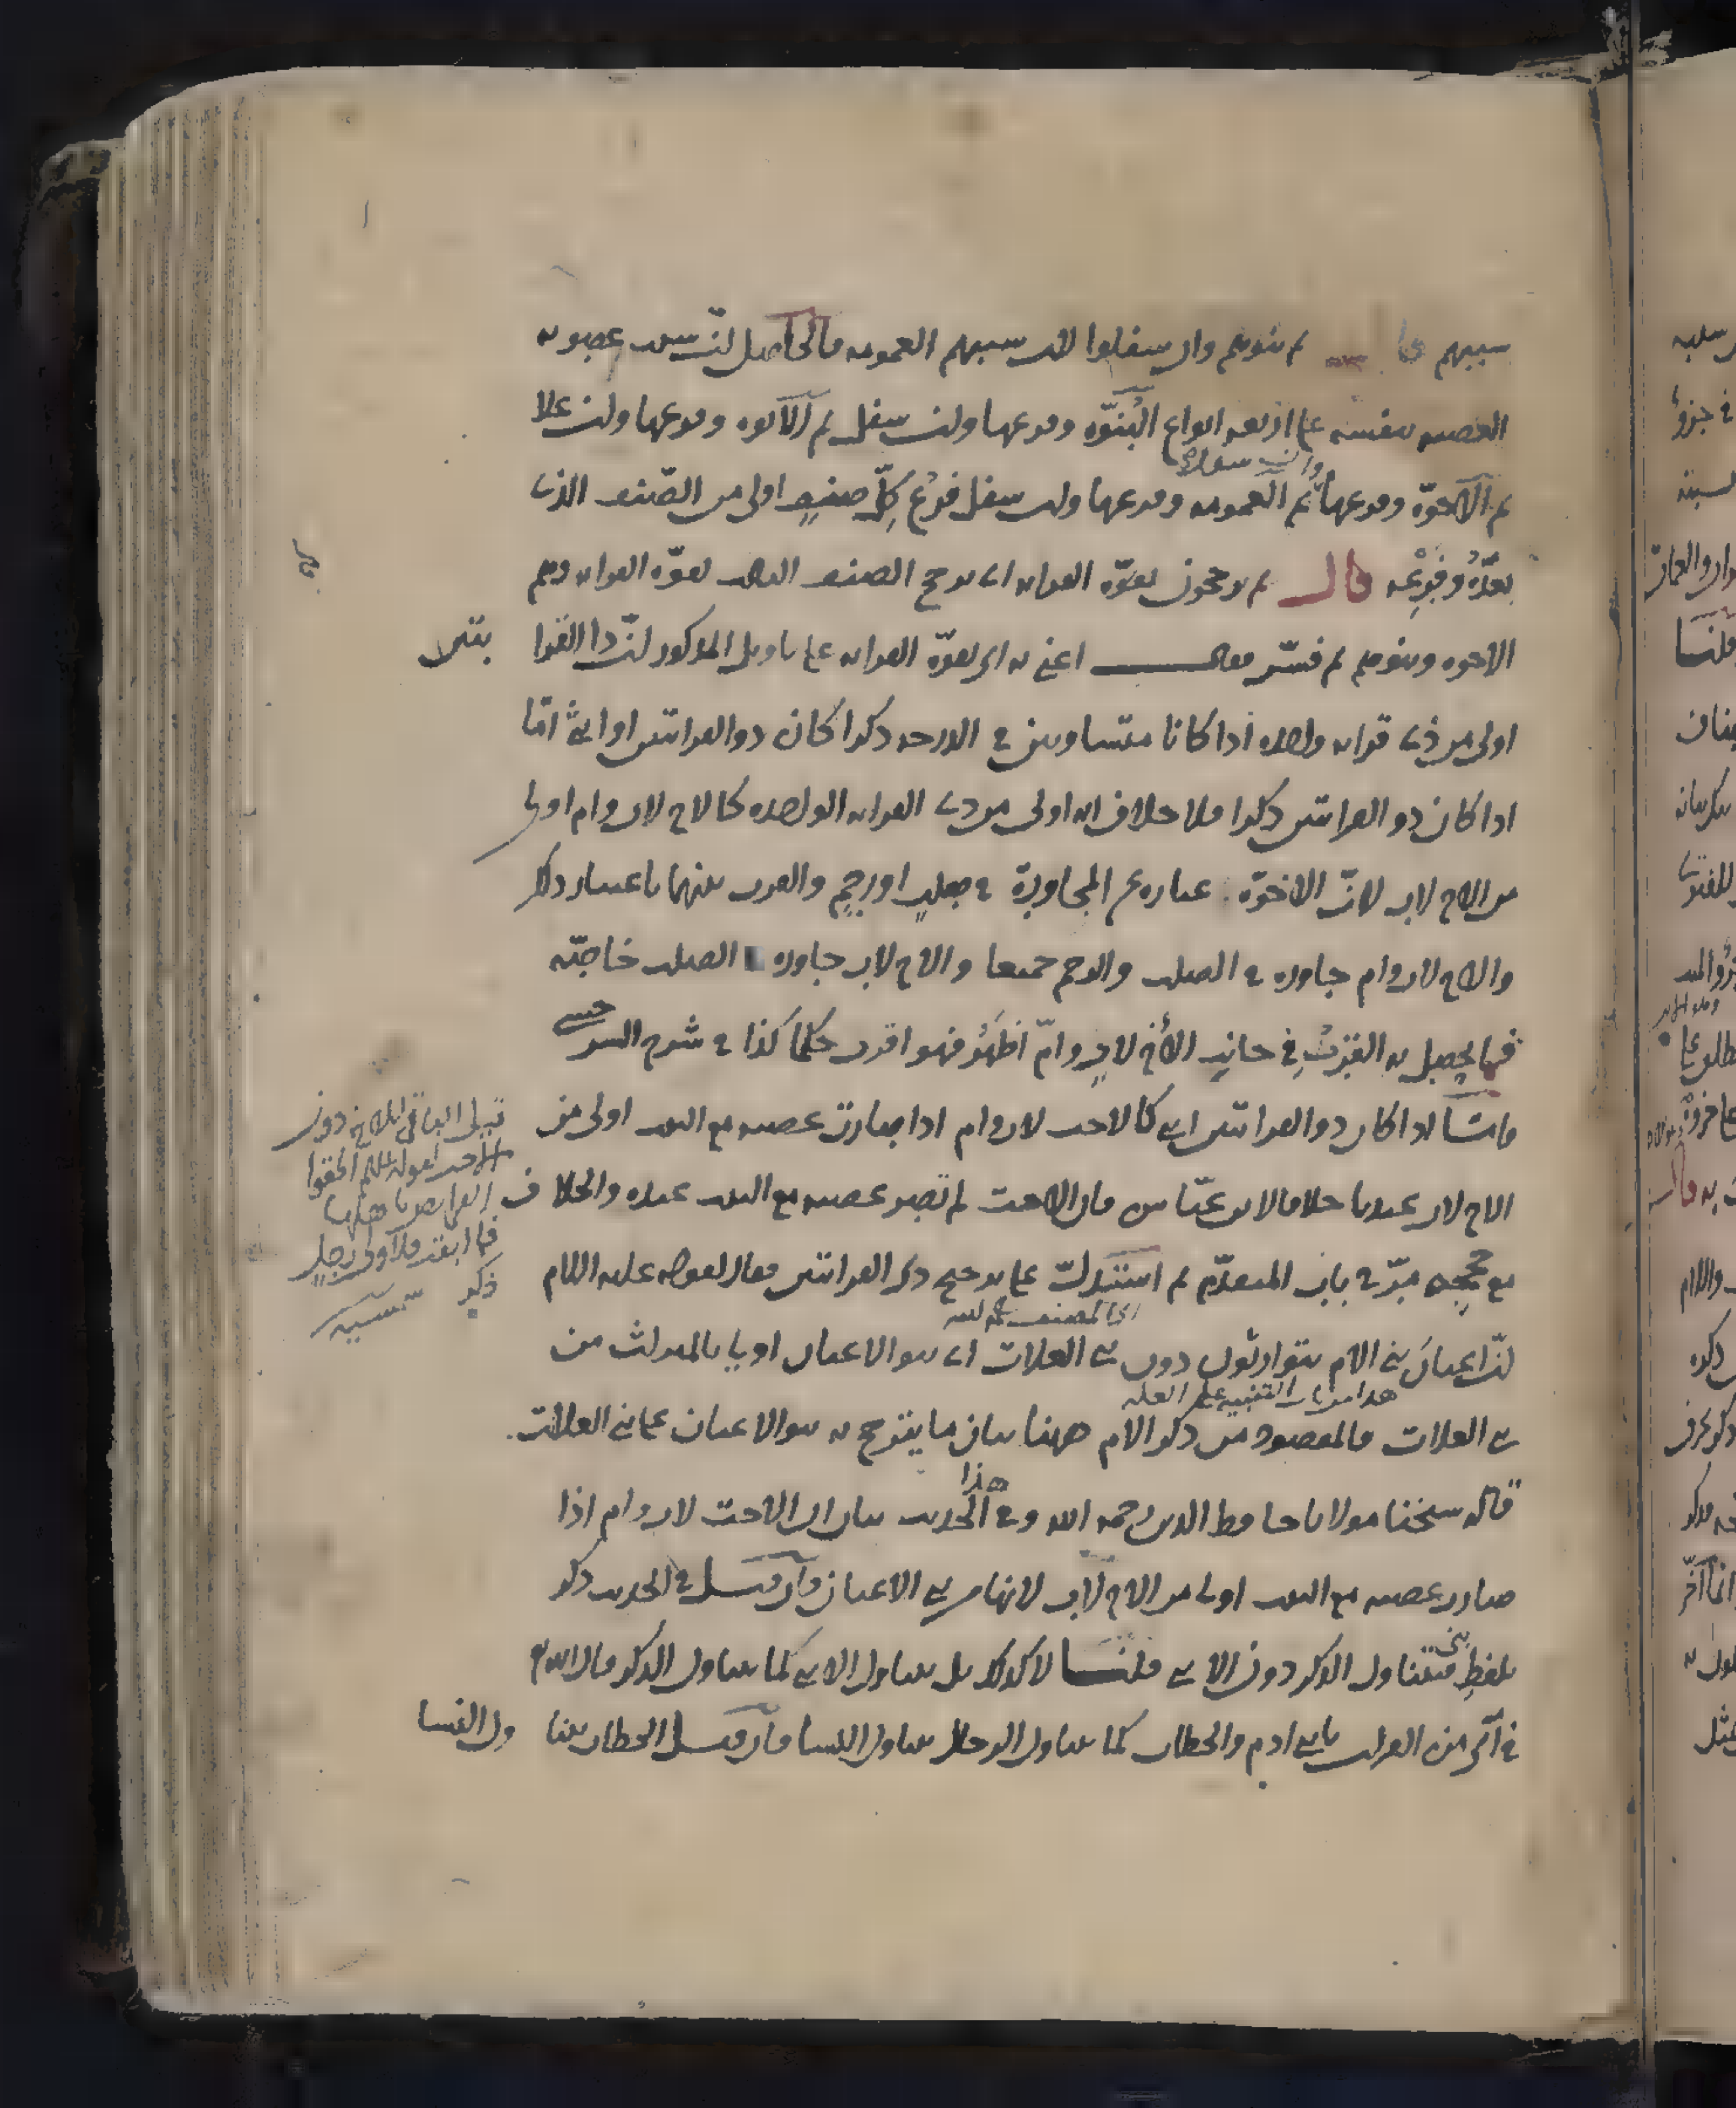 سببهم قال ثم بنوهم وان سفلوا لان سببهم العمومه فالحاصل ان سبب عصوبه
العصبه بنفسه على اربعه انواع البنوّه وفرعها وان سفل ثم الابوه وفرعها وان علا
ثم الاخوّة وفرعها ثم العمومه وفرعها وان سفل فرع كلّ صنفٍ اولى من الصنف الذى
وان سفلا
بعدَهُ وفرعِه قال ثم يرجحون بقوّه القرابه اى يرجح الصنف الثالث بقوّه القرابه وهم
الاخوه وبنوهم ثم فسّر فقال اعنى به اى بقوّة القرابه على تاويل المذكور انّ ذا القرا بتين
اولى من ذى قرابه واحده اذا كانا متساويين فى الدرجه ذكرا كان ذو القرابتين او انثى امّا
اذا كان ذو القرابتين ذكرا فلا خلاف انه اولى من ذى القرابه الواحده كالاخ لاب وام اولى
من الاخ لاب لانّ الاخوّة عباره عن المجاورة فى صلبٍ او رحمٍ والقرب بينهما باعتبار ذلك
والاخ لاب وام جاوره فى الصلب والرحم جميعا والاخ لاب جاوره الصلب خاصّه
فما يحصل به القربُ فى جانب الأخ لابٍ وامّ اظهَرُ فهو اقرب حكما كذا فى شرح السرخسى
وامّا اذا كان ذو القرابتين انثى كالاخت لاب وام اذا صارت عصبه مع البنت اولى من
الاخ لاب عندنا خلافا لابن عبّاس فان الاخت لم تصر عصبه مع البنت عنده والخلاف
مع حججه مرّ فى باب المتقدّم ثم استدلّ على ترجيح ذى القرابتين فقال لقوله عليه السلام
اى المصنف رحمه الله
انّ اعيانَ بنى الام يتوارثون دون بنى العلات اى بنو الاعيان اولى بالميراث من
هذا من باب التنبيه على العله
بنى العلات فالمقصود من ذكر الام ههنا بيان ما يترجح به بنو الاعيان على بنى العلات
قال شيخنا مولانا حافظ الدين رحمه الله وفى هذا الحديث بيان ان الاخت لاب وام اذا
صارت عصبه مع البنت اولى من الاخ لاب لانها من بنى الاعيان فان قيل فى الحديث ذكر
بلفظِ بنى فيتناول الذكر دون الانثى قلنا لا كذلك بل يتناول الانثى كما يتناول الذكر قال الله تع
فى آى من القران يا بنى ادم والخطاب كما يتناول الرجال يتناول النسا فان قيل الخطاب يتنا ول النسا
قيل الباقى للاخ دون
الاخت لقوله عليه السلم الحقوا
الفرايض باهلها
فما ابقت فلاولى رجلٍ
ذكرٍ